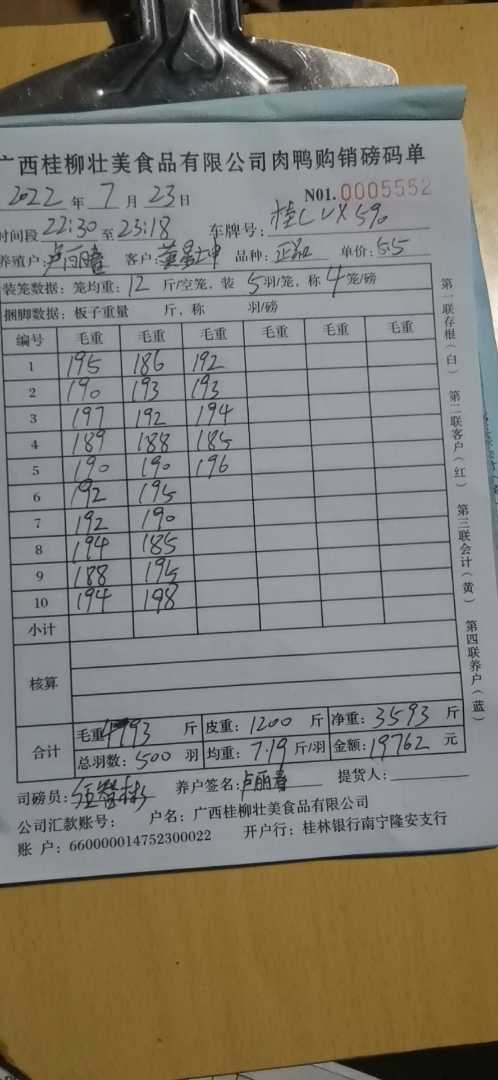 广西桂柳壮美食品有限公司肉鸭购销磅码单
2022 年 7 月 23 日 NO1. 0005552
时间段 22:30 至 23:18 车牌号：桂C VX590
养殖户：卢丽春 客户： 品种： 单价：5.5
装笼数据：笼均重：12 斤/空笼，装 5 羽/笼，称 4 笼/磅
捆脚数据：板子重量 斤，称 羽/磅
编号 毛重 毛重 毛重 毛重 毛重 毛重
1 195 186 192
2 190 193 193
3 197 192 194
4 189 188 185
5 190 190 196
6 192 195
7 192 190
8 194 185
9 188 195
10 194 198
小计
核算
合计 毛重 4793 斤 皮重：1200 斤 净重：3593 斤
总羽数：500 羽 均重：7.19 斤/羽 金额：19762 元
司磅员： 养户签名：卢丽春 提货人：
公司汇款账号： 户名：广西桂柳壮美食品有限公司
账 户：660000014752300022 开户行：桂林银行南宁隆安支行
第一联存根（白） 第二联客户（红） 第三联会计（黄） 第四联养户（蓝）